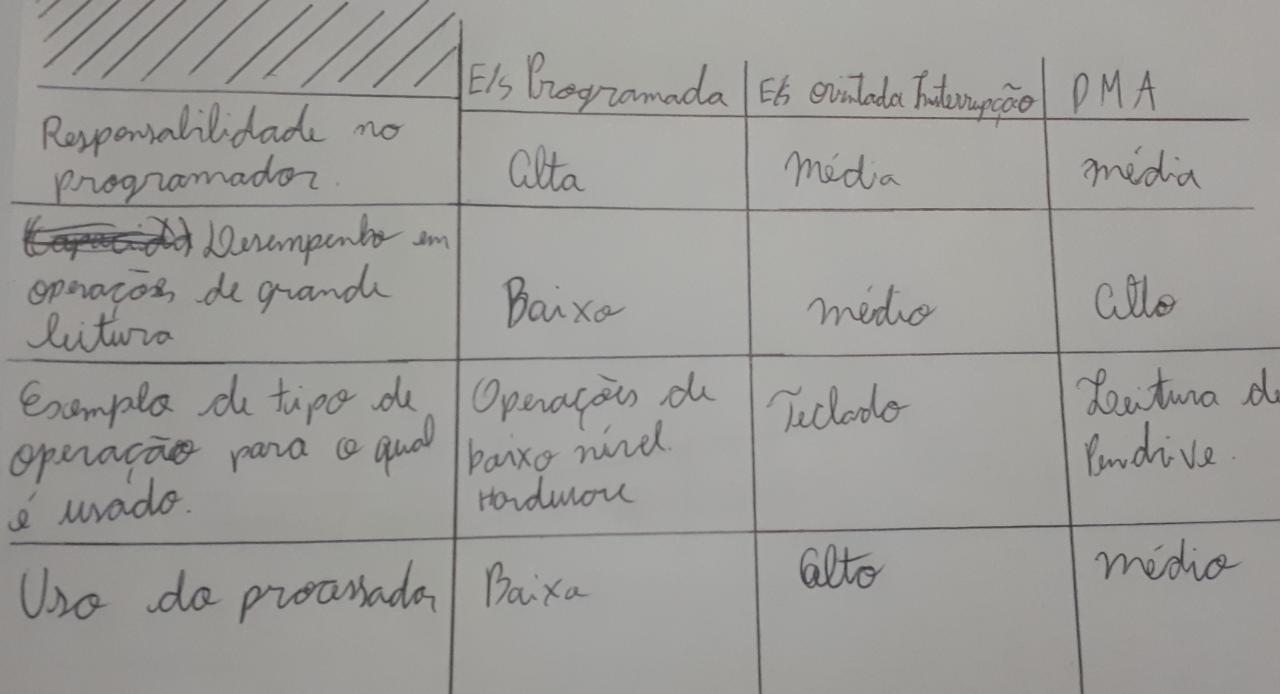 E/S Programada
E/S orintada Interrupção
DMA
Responsabilidade no
programador.
Alta
Média
média
Desempenho em
operações de grande
leitura
Baixo
médio
Alto
Exemplo de tipo de
operação para o qual
é usado.
Operações de
baixo nível.
Hardware
Teclado
Leitura de
Pendive.
Uso do processador
Baixa
alto
médio